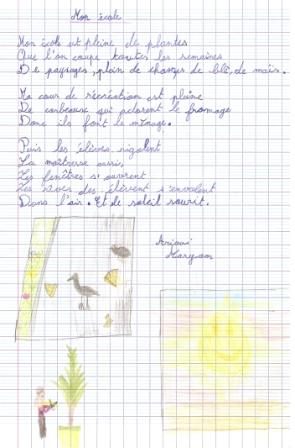 Mon école
Mon école est pleine de plantes
Que l'on coupe toutes les semaines
De paysages, plein de champs de blé, de maïs.
Ma cour de récréation est pleine
De corbeaux qui adorent le fromage
Donc ils font le ménage.
Puis les élèves rigolent
La maîtresse aussi,
Les fenêtres s'ouvrent
Les rêves des élèves s'envolent
Dans l'air. Et le soleil sourit.
Maryam